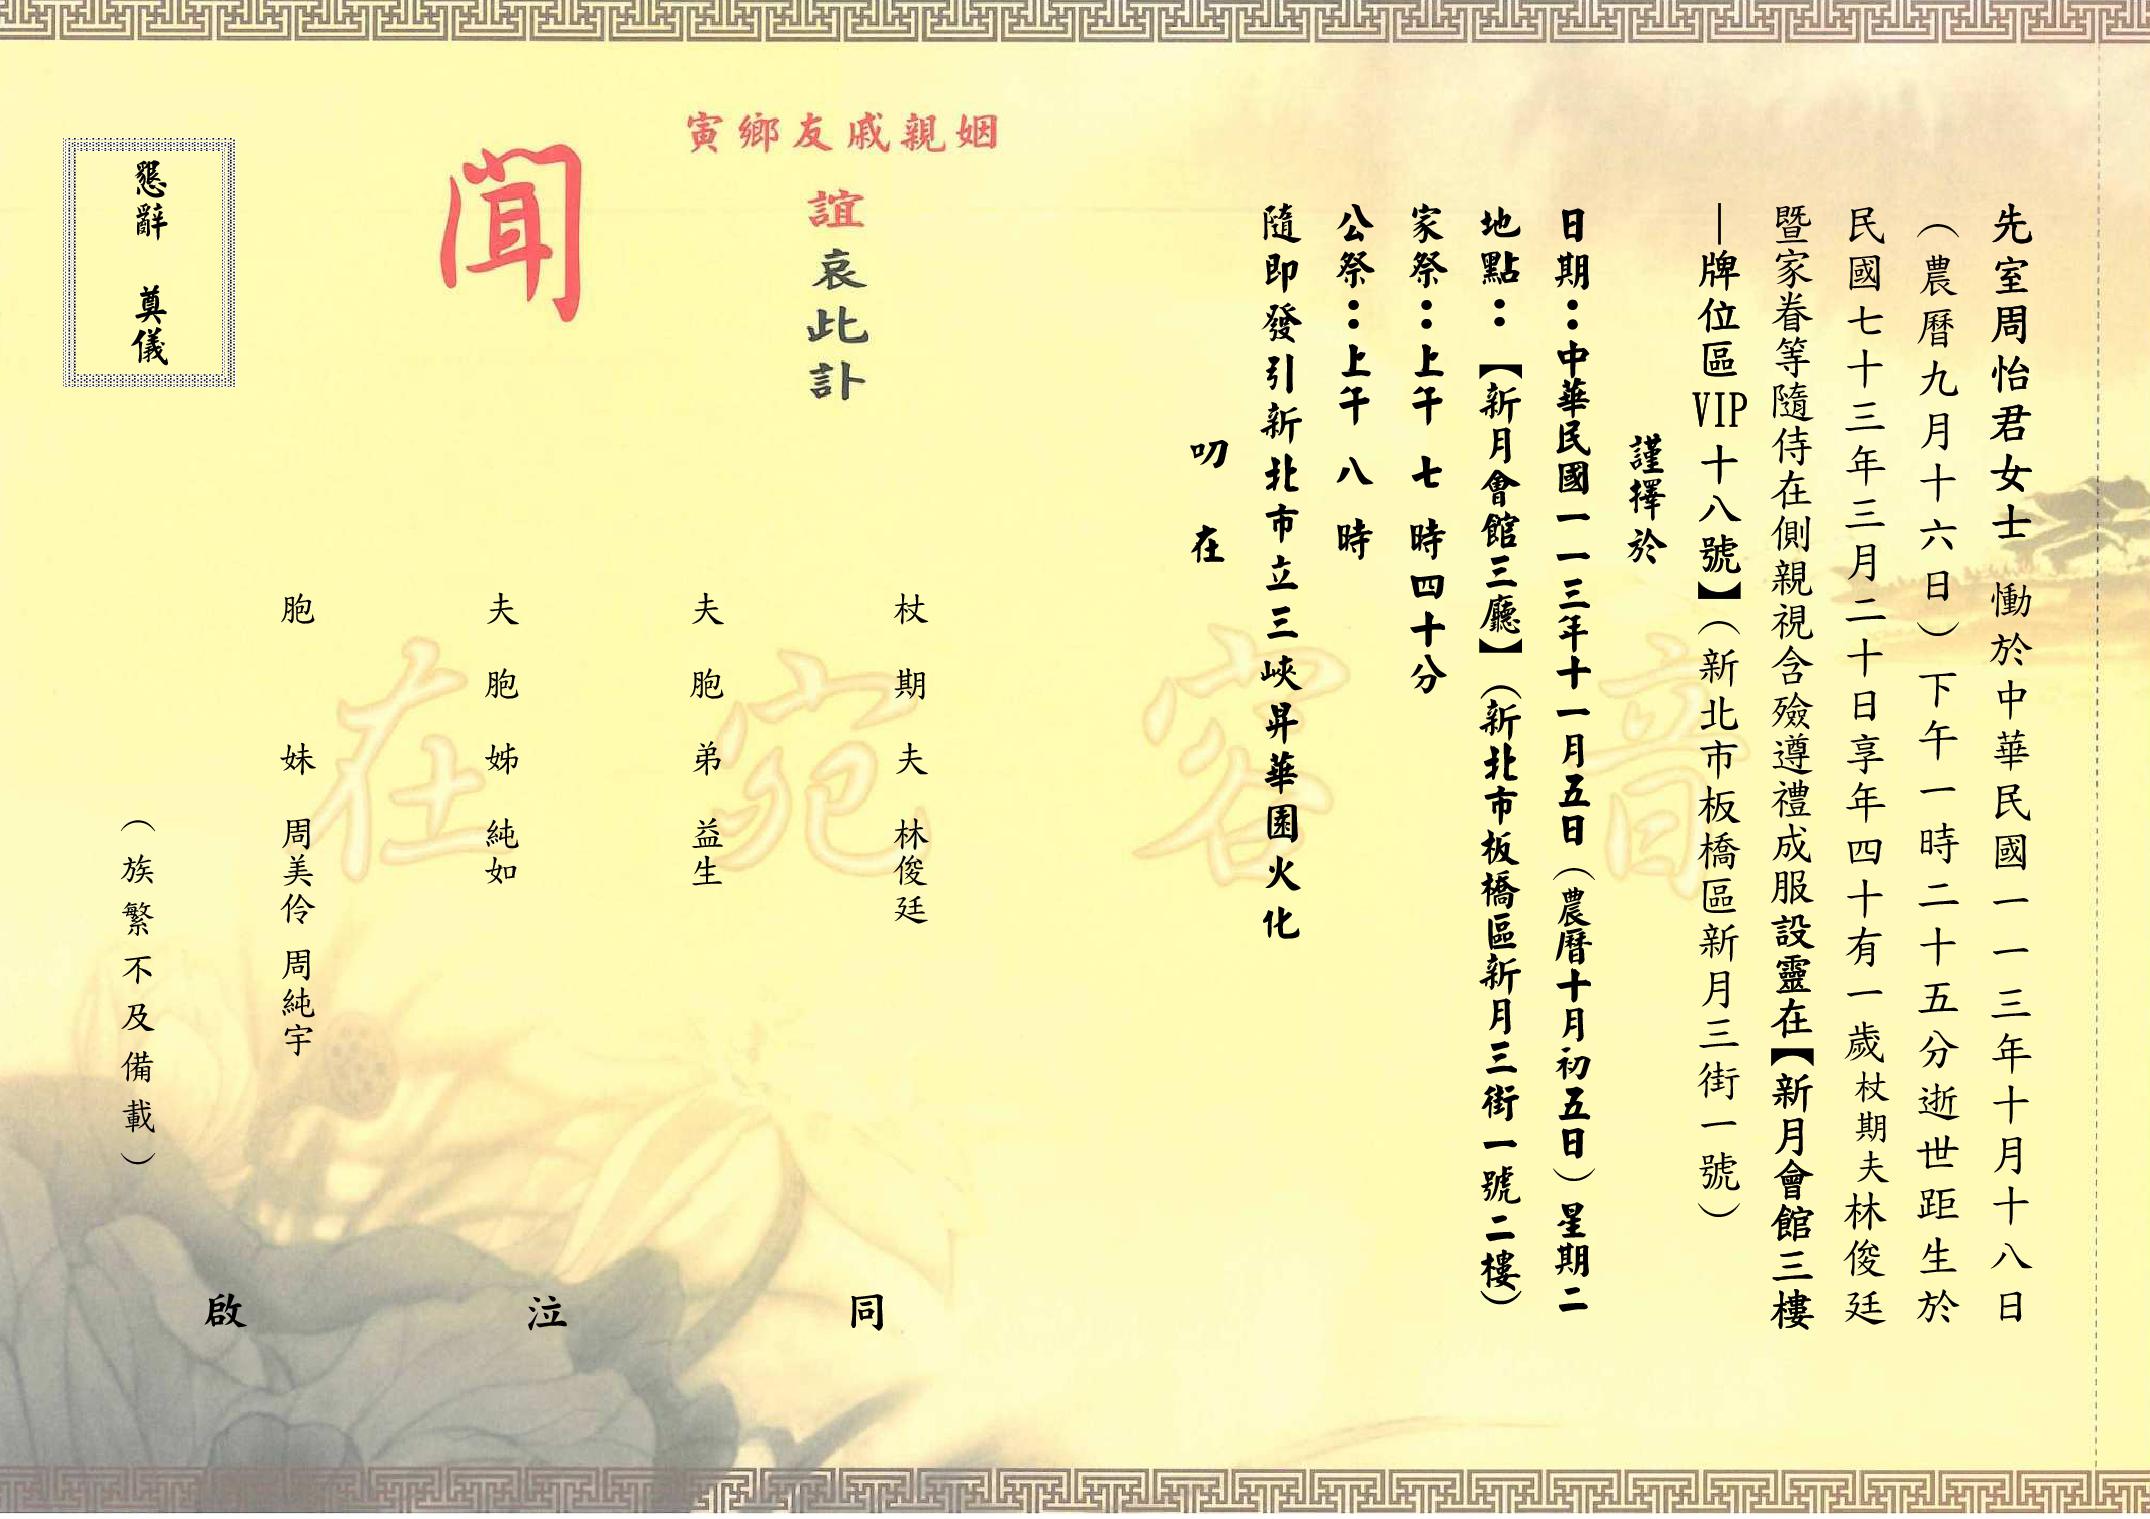 先室周怡君女士　慟於中華民國一一三年十月十八日
（農曆九月十六日）下午一時二十五分逝世距生於
民國七十三年三月二十日享年四十有一歲杖期夫林俊廷
暨家眷等隨侍在側親視含殮遵禮成服設靈在【新月會館三樓
—牌位區VIP十八號】（新北市板橋區新月三街一號）
謹擇於
日期：中華民國一一三年十一月五日（農曆十月初五日）星期二
地點：【新月會館三廳】（新北市板橋區新月三街一號二樓）
家祭：上午七時四十分
公祭：上午八時
隨即發引新北市立三峽昇華園火化
叨在
姻親戚友鄉寅
誼哀此訃
聞
杖期夫 林俊廷
夫胞弟 益生
夫胞姊 純如
胞妹 周美伶 周純宇
（族繁不及備載）
同泣啟
懇辭 奠儀
音容宛在